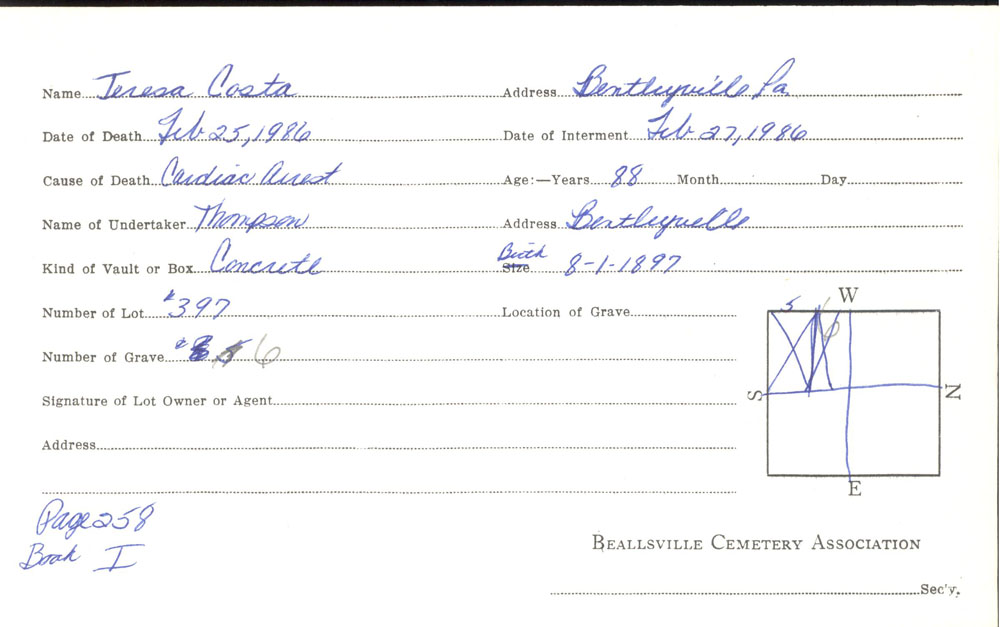 Name Teresa Costa Address Bentleyville Pa
Date of Death Feb 25, 1986 Date of Interment Feb 27, 1986
Cause of Death Cardiac Arrest Age:—Years 88 Month Day
Name of Undertaker Thompson Address Bentleyville
Birth
Kind of Vault or Box Concrete Size 8-1-1897
Number of Lot #397 Location of Grave
W
5 6
Number of Grave # 5 6
S N
Signature of Lot Owner or Agent
Address
E
Page 258
Book I
BEALLSVILLE CEMETERY ASSOCIATION
Sec'y.